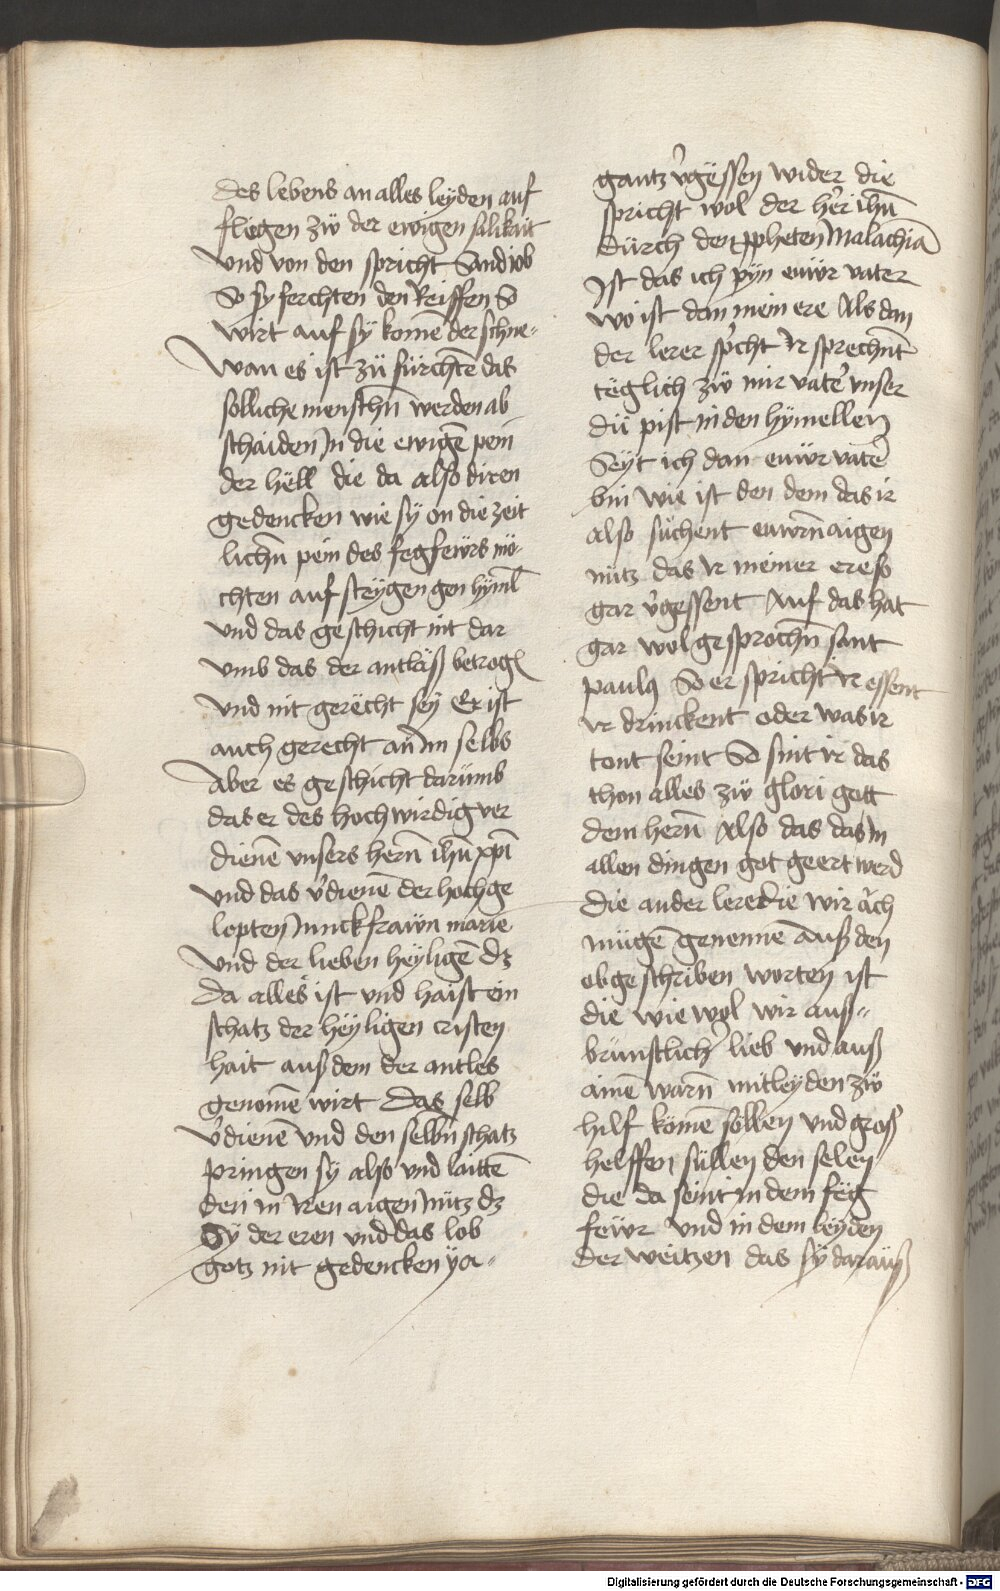 des lebens an alles leyden auf
fliegen zü der ewigen salikait
Und von den spricht Sand iob
So sy ferchten den Reiffen So
wirt auf sy komē der schne-
Wan es ist zü fürchtē das
solliche menschn̄ werden ab
schaiden in die ewigē pein
der hëll die da also diren
gedencken wie sÿ on die zeit
lichn̄ pein des fegfewrs mö-
chten auf steÿgen gen hÿml̄
und das geschicht nit dar
umb das der antläß betrogē
Und nit gerëcht seÿ Er ist
auch gerecht an̄ im selbs
Aber es geschicht darümb
das er des hochwirdig ver
dienē unsers hern̄ ihū xpī
und das v̓dienē der hochge
lepten junckfrawn marie
Und der lieben heÿligē dz
da alles ist und haist ein
schatz der heÿligen cristen
hait auß dem der antles
genomē wirt Das selb
v̓dienē und den selbn̄ schatz
pringen sy also und laittē
den in iren aigen nütz dz
Sÿ der eren und das lob
gotz nit gedencken ya-
gantz v̓gëssen wider die
spricht wol der her̓ ihū
Dürch den ppheten Malachiā
Ist das ich pÿn euwr vater
wo ist dan mein ere Als dan
der lerer sp̓cht Ir sprechnt̄
täglich zü mir vate̓ unser
dü pist in den hÿmellen
Seÿt ich dan euwr vate̓
bin wie ist den dem das ir
also süchent euwrn̄ aigen
nütz das ir meiner ere so
gar v̓gessent Auf das hat
gar wol gesprochn̄ sant
paulꝫ So er spricht Ir essent
Ir drinckent oder was ir
tont seint So sint ir das
thon alles zü glori gott
dem hern̄ Also das das in
allen dingen got geert werd
Die ander lere die wir aůch
mügē genemē auß den
obgeschriben worten ist
die wie wol wir auß-
brünstlich̓ lieb und auß
ainē warn̄ mitleyden zü
hilf komē söllen und groß
helffen süllen den selen
die da seint in dem feg
fewr und in dem leyden
der weitzen das sÿ darauß
Digitalisierung gefördert durch die Deutsche Forschungsgemeinschaft - DFG